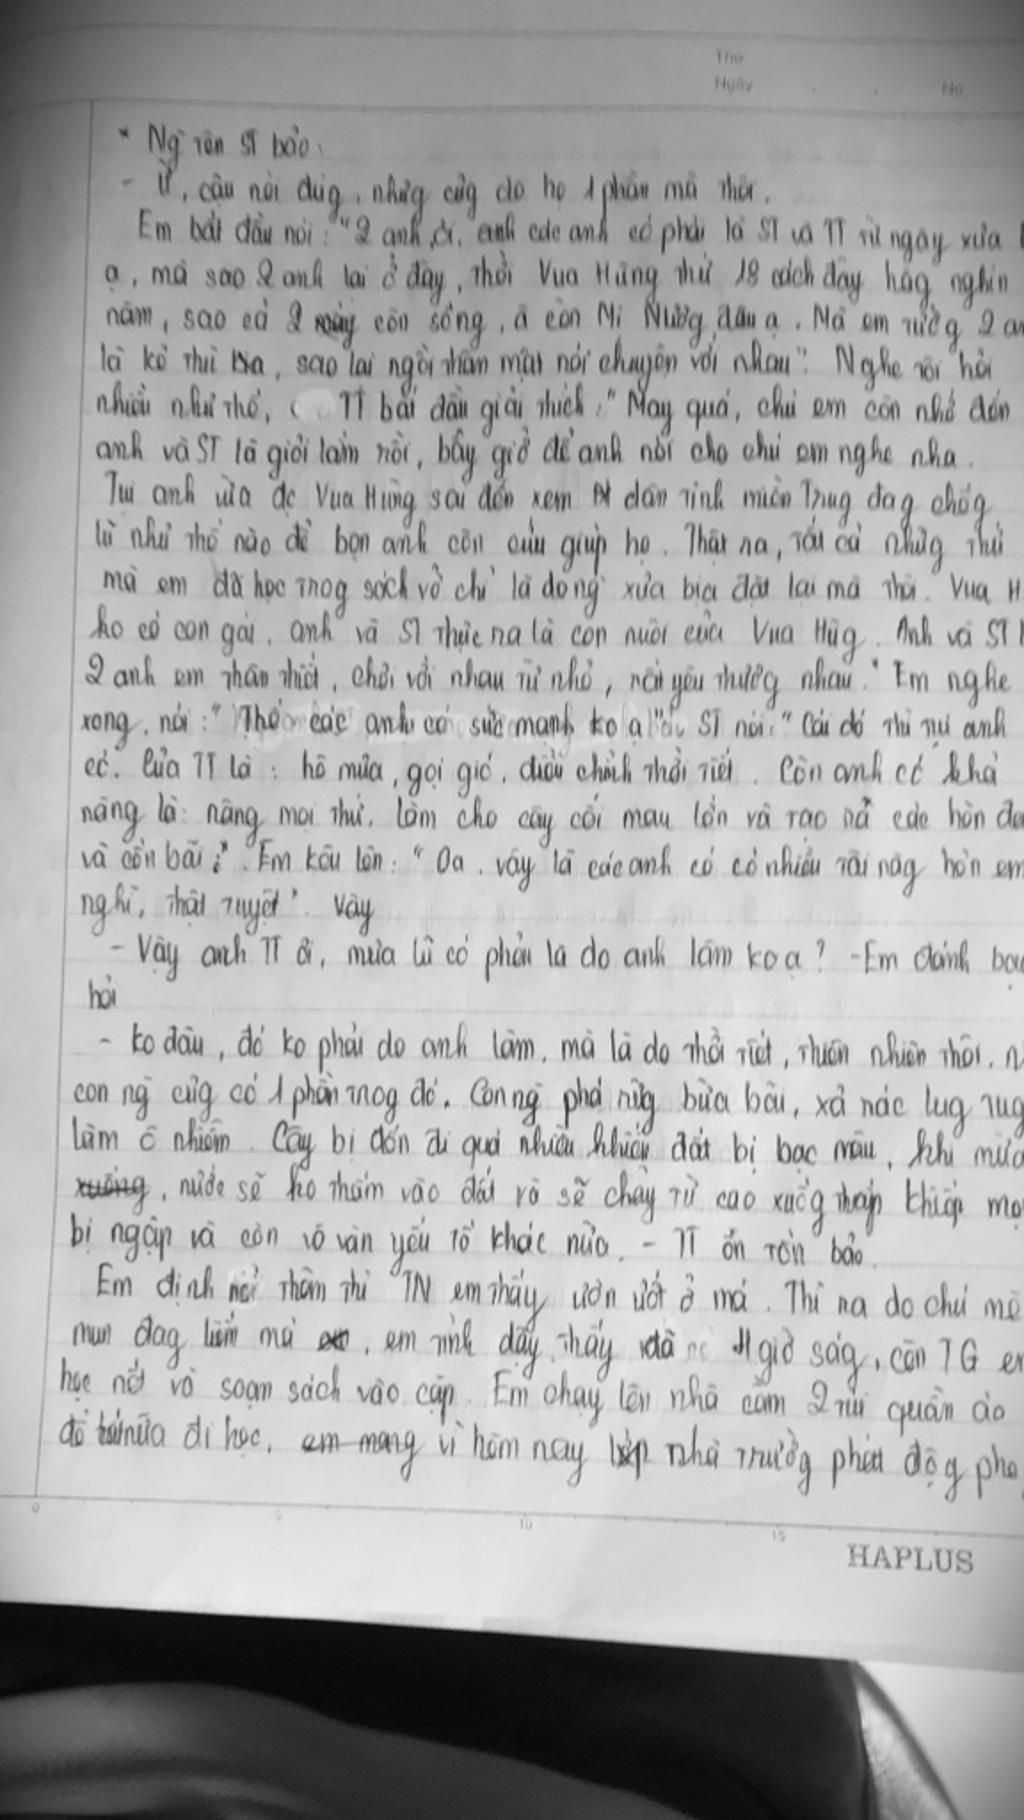 Thứ
Ngày No.
* Ng tên ST bảo:
- Ừ, cậu nói đúg, nhưg cũg do họ 1 phần mà thôi.
Em bắt đầu nói: "2 anh ơi, anh các anh có phải là ST và TT từ ngày xưa
ạ, mà sao 2 anh lại ở đây, thời Vua Hùng thứ 18 cách đây hàg nghìn
năm, sao cả 2 còn sống, à còn Mị Nươg đâu ạ. Mà em tưởg 2 an
là kẻ thù mà, sao lại ngồi thân mật nói chuyện với nhau". Nghe tôi hỏi
nhiều như thế, TT bắt đầu giải thích: "May quá, chú em còn nhớ đến
anh và ST là giỏi lắm rồi, bây giờ để anh nói cho chú em nghe nha.
Tụi anh vừa đc Vua Hùng sai đến xem dân tình miền Trug đag chốg
lũ như thế nào để bọn anh còn cứu giúp họ. Thật ra, tất cả nhữg thứ
mà em đã học trog sách vở chỉ là do ng xưa bịa đặt lại mà thôi. Vua H
ko có con gái, anh và ST thực ra là con nuôi của Vua Hùg. Anh và ST
2 anh em thân thiết, chơi với nhau từ nhỏ, rất yêu thươg nhau." Em nghe
xong, nói: "Thế các anh có sức mạnh ko ạ" ST nói: "Cái đó thì tụi anh
có. Của TT là: hô mưa, gọi gió, điều chỉnh thời tiết. Còn anh có khả
năng là: nâng mọi thứ, làm cho cây cối mau lớn và tạo ra các hòn đả
và cồn bãi". Em kêu lên: "Oa, vậy là các anh có có nhiều tài năg hơn em
nghĩ, thật tuyệt". Vậy
- Vậy anh TT ơi, mưa lũ có phải là do anh làm ko ạ? - Em đánh bạo
hỏi
- Ko đâu, đó ko phải do anh làm, mà là do thời tiết, thiên nhiên thôi, n
con ng cũg có 1 phần trog đó. Con ng phá rừg bừa bãi, xả rác lug tug
làm ô nhiễm. Cây bị đốn đi quá nhiều khiến đất bị bạc màu, khi mưa
xuống, nước sẽ ko thấm vào đất và sẽ chảy từ cao xuốg thấp khiến mọ
bị ngập và còn vô vàn yếu tố khác nữa. - TT ôn tồn bảo.
Em định nói thêm thì TN em thấy ươn ướt ở má. Thì ra do chú mè
mun đag liếm má, em tỉnh dậy, thấy đã 4 giờ ság, còn TG em
học nốt và soạn sách vào cặp. Em chạy lên nhà cầm 2 túi quần áo
để nữa đi học, em mang vì hôm nay nhà trườg phát độg pho
0 5 10 15
HAPLUS